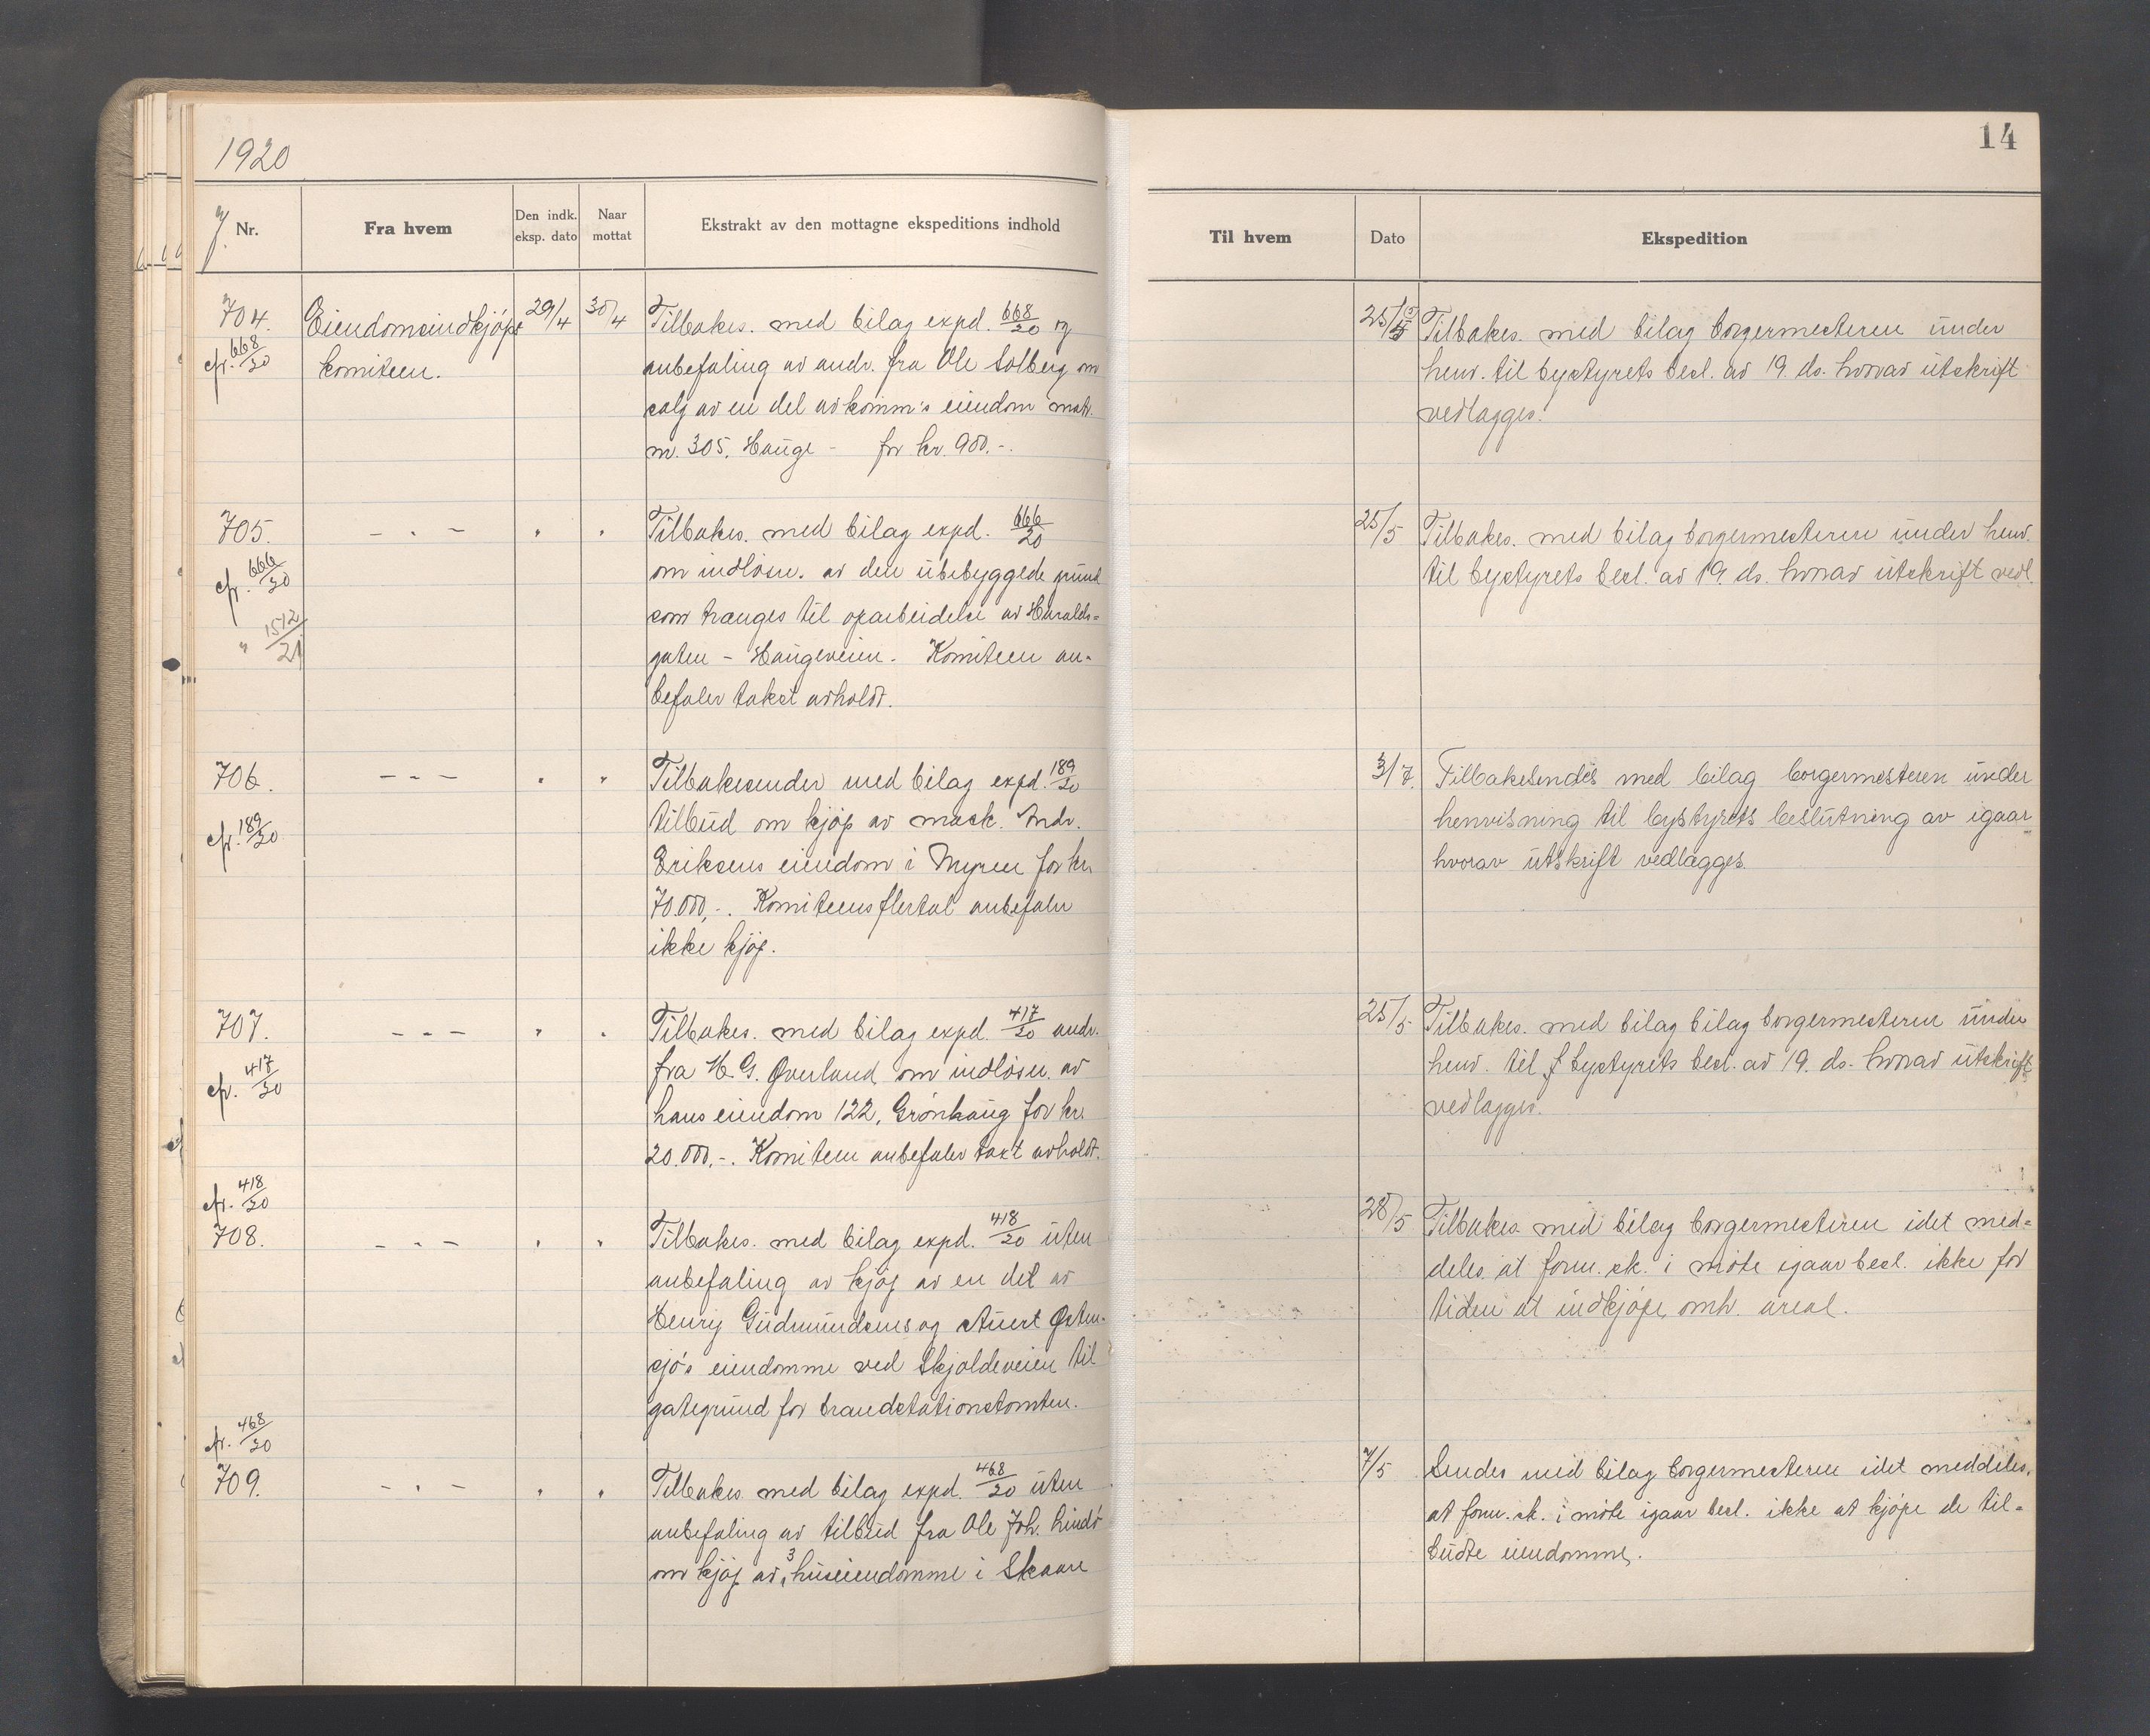 1920
J. Nr.
Fra hvem
Den indk. eksp. dato
Naar mottat
Ekstrakt av den mottagne ekspeditions indhold
704.
cfr. 668/20
Eiendomsindkjøps
komiteen.
29/4
30/4
Tilbakes. med bilag expd. 668/20 og
anbefaling av andr. fra Ole Solberg om
salg av en del av komm's eiendom matr.
nr. 305, Hauge - for kr. 900.-.
705.
cfr. 666/20
" 1512/21
- " -
"
"
Tilbakes. med bilag expd. 666/20
om indløsn. av den ubebyggede grund
som tranges til oparbeidelse av Haralds=
gaten - Haugeveien. Komiteen an-
befaler takst avholdt.
706.
cfr. 189/20
- " -
"
"
Tilbakesender med bilag expd. 189/20
tilbud om kjøp av mask. Andr.
Eriksens eiendom i Myren for kr.
70.000,-. Komiteens flertal anbefaler
ikke kjøp.
707.
cfr. 417/20
- " -
"
"
Tilbakes. med bilag expd. 417/20 andr.
fra H. G. Øverland om indløsn. av
hans eiendom 122, Grønhaug for kr.
20.000,-. Komiteen anbefaler takst avholdt.
cfr. 418/20
708.
- " -
"
"
Tilbakes. med bilag expd. 418/20 uten
anbefaling av kjøp av en del av
Henry Gudmundsens og Sivert Østen-
sjø's eiendomme ved Skjoldeveien til
gategrund for brandstationstomten.
cfr. 468/20
709.
- " -
"
"
Tilbakes. med bilag expd. 468/20 uten
anbefaling av tilbud fra Ole Joh. Lindø
om kjøp av 3 huseiendomme i Skaare
14
Til hvem
Dato
Ekspedition
25/5
Tilbakes. med bilag borgermesteren under
henv. til bystyrets besl. av 19. ds. hvorav utskrift
vedlægges.
25/5
Tilbakes. med bilag borgermesteren under henv.
til bystyrets besl. av 19. ds. hvorav utskrift vedl.
3/7.
Tilbakesendes med bilag borgermesteren under
henvisning til bystyrets beslutning av igaar
hvorav utskrift vedlægges.
25/5
Tilbakes. med bilag bilag borgermesteren under
henv. til bystyrets besl. av 19. ds. hvorav utskrift
vedlægges.
28/5
Tilbakes. med bilag borgermesteren idet med=
deles at form.sk. i møte igaar besl. ikke for
tiden at indkjøpe omh. areal.
7/5
Sendes med bilag borgermesteren idet meddeles,
at form.sk. i møte igaar besl. ikke at kjøpe de til-
budte eiendomme.